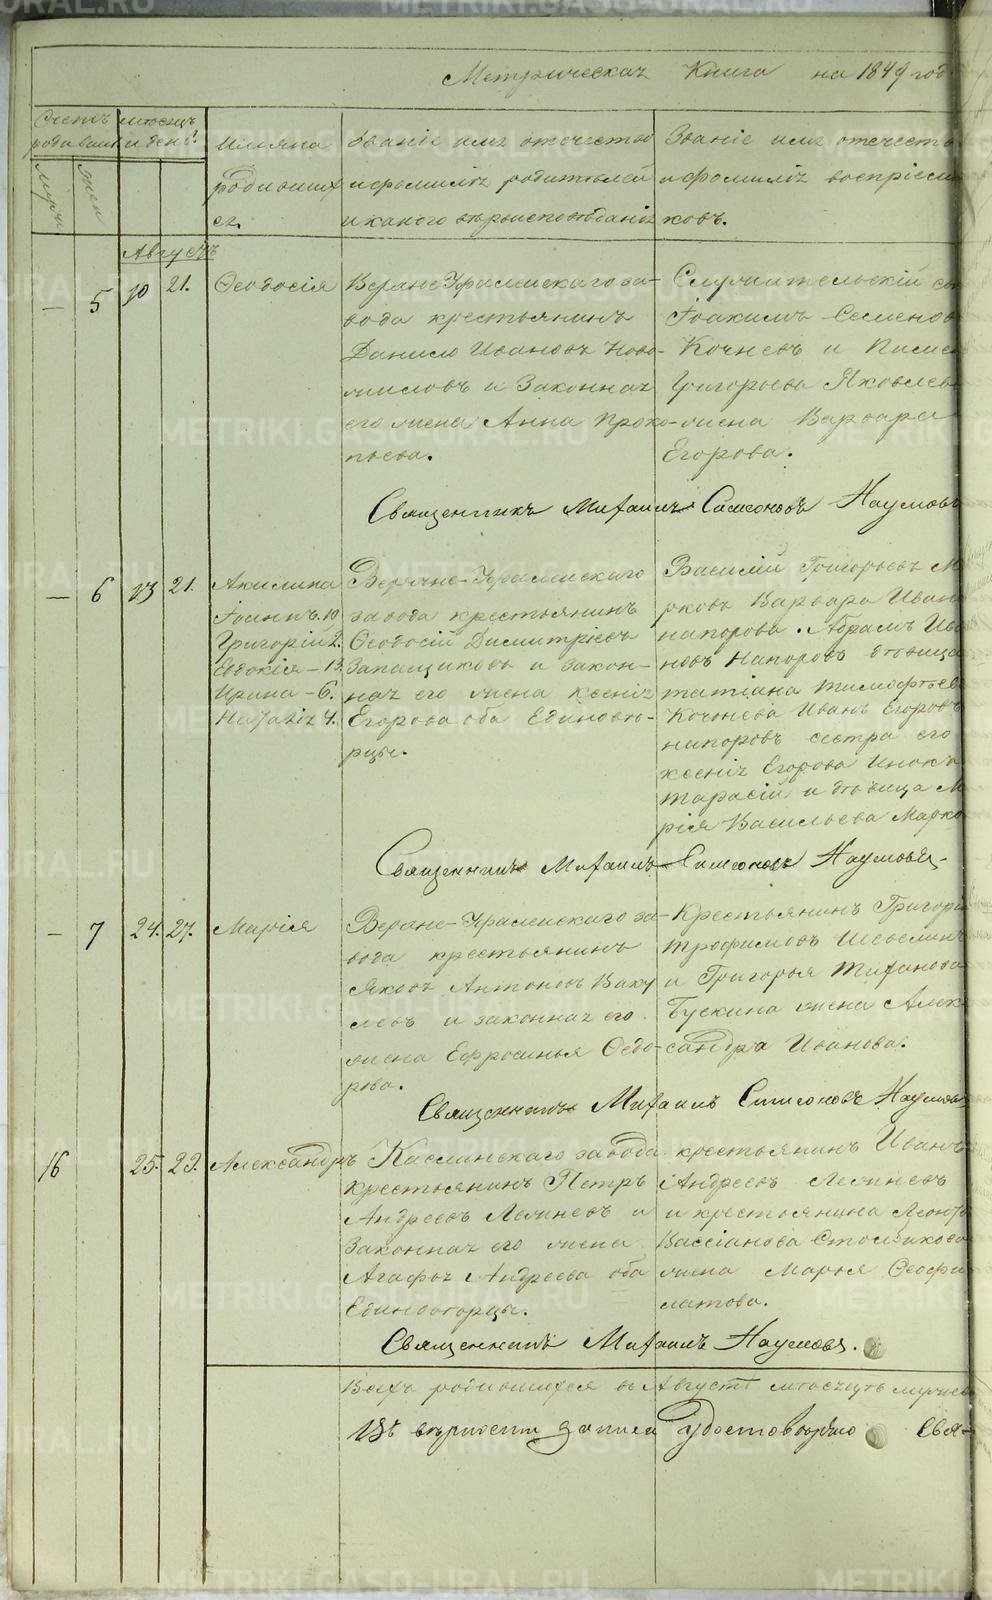 Метрическая Книга на 1849 год
Счетъ родившихся
мужеска
женска
месяцъ и день
Имяна родившихся.
Званіе имя отечество и фамилія родителей и какого вѣроисповѣданія
Званіе имя отечество и фамилія воспріемниковъ.
Августъ
— 5 10 21. Ѳеодосія
Верхне-Уфалейскаго за-
вода крестьянинъ
Данило Ивановъ Ново-
миловъ и законная
его жена Анна Проко-
пьева.
Іоакимъ Семенов
Кочневъ и
Григорьева Яковлев
жена Варвара
Егорова.
Священникъ Михаилъ Симеоновъ Наумовъ
— 6 13 21. Акилина
Іоаннъ. 10
Григорій 2.
Евдокія – 13.
Ирина – 6.
Наталія 4.
Верхне-Уфалейскаго
завода крестьянинъ
Ѳеодосій Димитріевъ
Запащиковъ и закон-
ная его жена Ксенія
Егорова оба Единовѣ-
рцы.
Василій Григорьевъ М
рковъ Варвара Иван
Напорова. Абрамъ Ива
новъ Напоровъ вдовица
Татіана Тимофѣева
Кочнева Иванъ Егоровъ
Напоровъ сестра его
Ксенія Егорова Инокъ
Тарасій и вдовица М
рія Васильева Марко
Священникъ Михаилъ Симеоновъ Наумовъ.
— 7 24. 27. Марія
Верхне-Уфалейскаго за-
вода крестьянинъ
Яковъ Антоновъ Ваку
левъ и законная его
жена Ефросинья Ѳедо-
рова.
Крестьянинъ Григорі
Трофимовъ Шевелинъ
и Григорья Тиханова
Бускина жена Алек-
сандра Иванова.
Священникъ Михаилъ Симеоновъ Наумовъ
16 25. 29. Александръ
Каслинскаго завода
крестьянинъ Петръ
Андреевъ Лежневъ и
законная его жена
Агафья Андреева оба
Единоверцы.
крестьянинъ Иванъ
Андреевъ Лежневъ
и крестьянина Леонтья
Вассіанова Столбикова
жена Марья Ѳеофи
латова.
Священникъ Михаилъ Наумовъ.
Всехъ родившихся въ Августѣ месяцѣ мужеска
Въ верности записи удостоверяю Свя-
METRIKI.GASO-URAL.RU